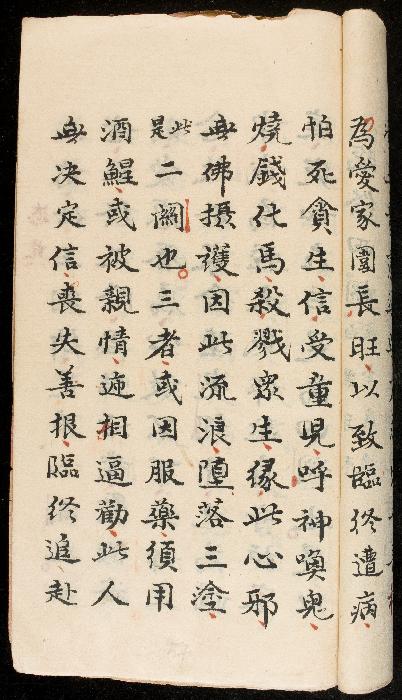 為愛家園長旺以致臨终遭病
怕死貪生信受童児呼神喚鬼
燒錢化馬殺戮衆生緣此心邪
無佛攝護因此流浪墮落三塗
此是二関也三者或因服藥須用
酒鯹或被親情逓相逼勸此人
無决定信喪失善根臨终追赴